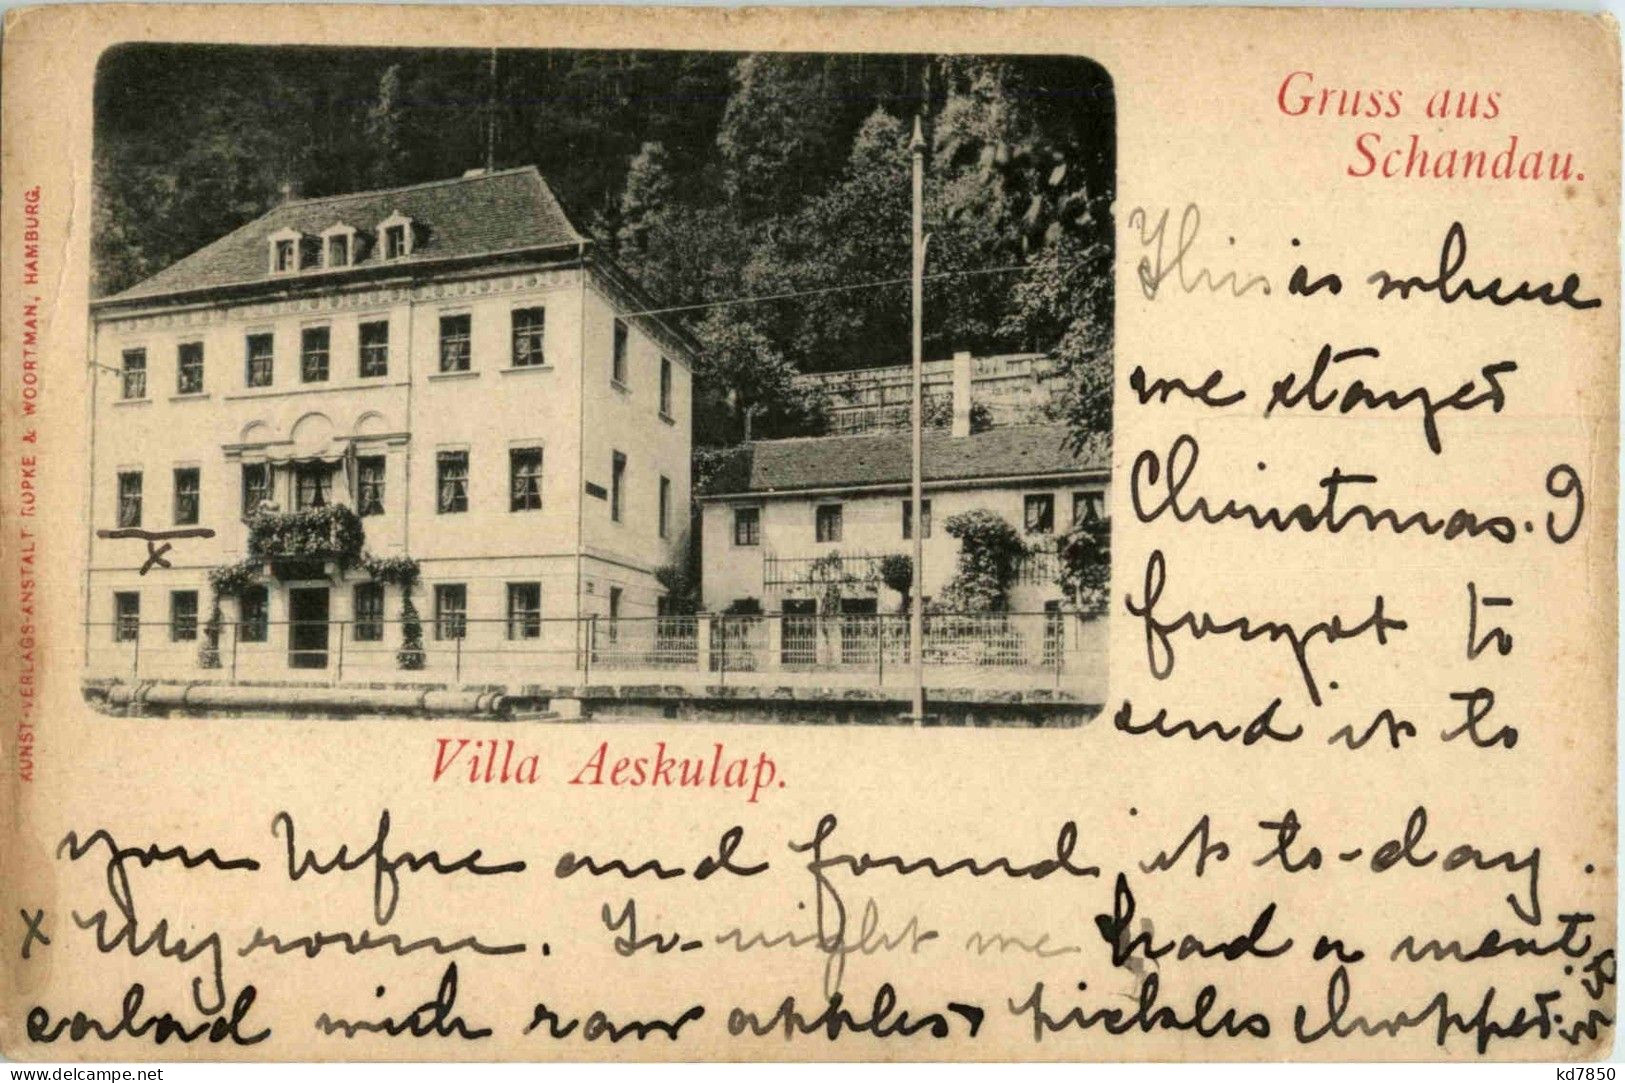 Gruss aus
Schandau.
This is where
we stayed
Christmas. I
forgot to
send it to
you before and found it to-day.
x My room. To-night we had a meat
salad with raw apples + pickles chopped in it
x
Villa Aeskulap.
KUNST-VERLAGS-ANSTALT RÜPKE & WOORTMAN, HAMBURG.
www.delcampe.net
kd7850